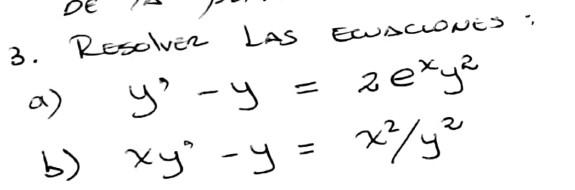 DE
3. RESOLVER LAS ECUACIONES:
a) y' - y = 2e^x y^2
b) xy' - y = x^2/y^2